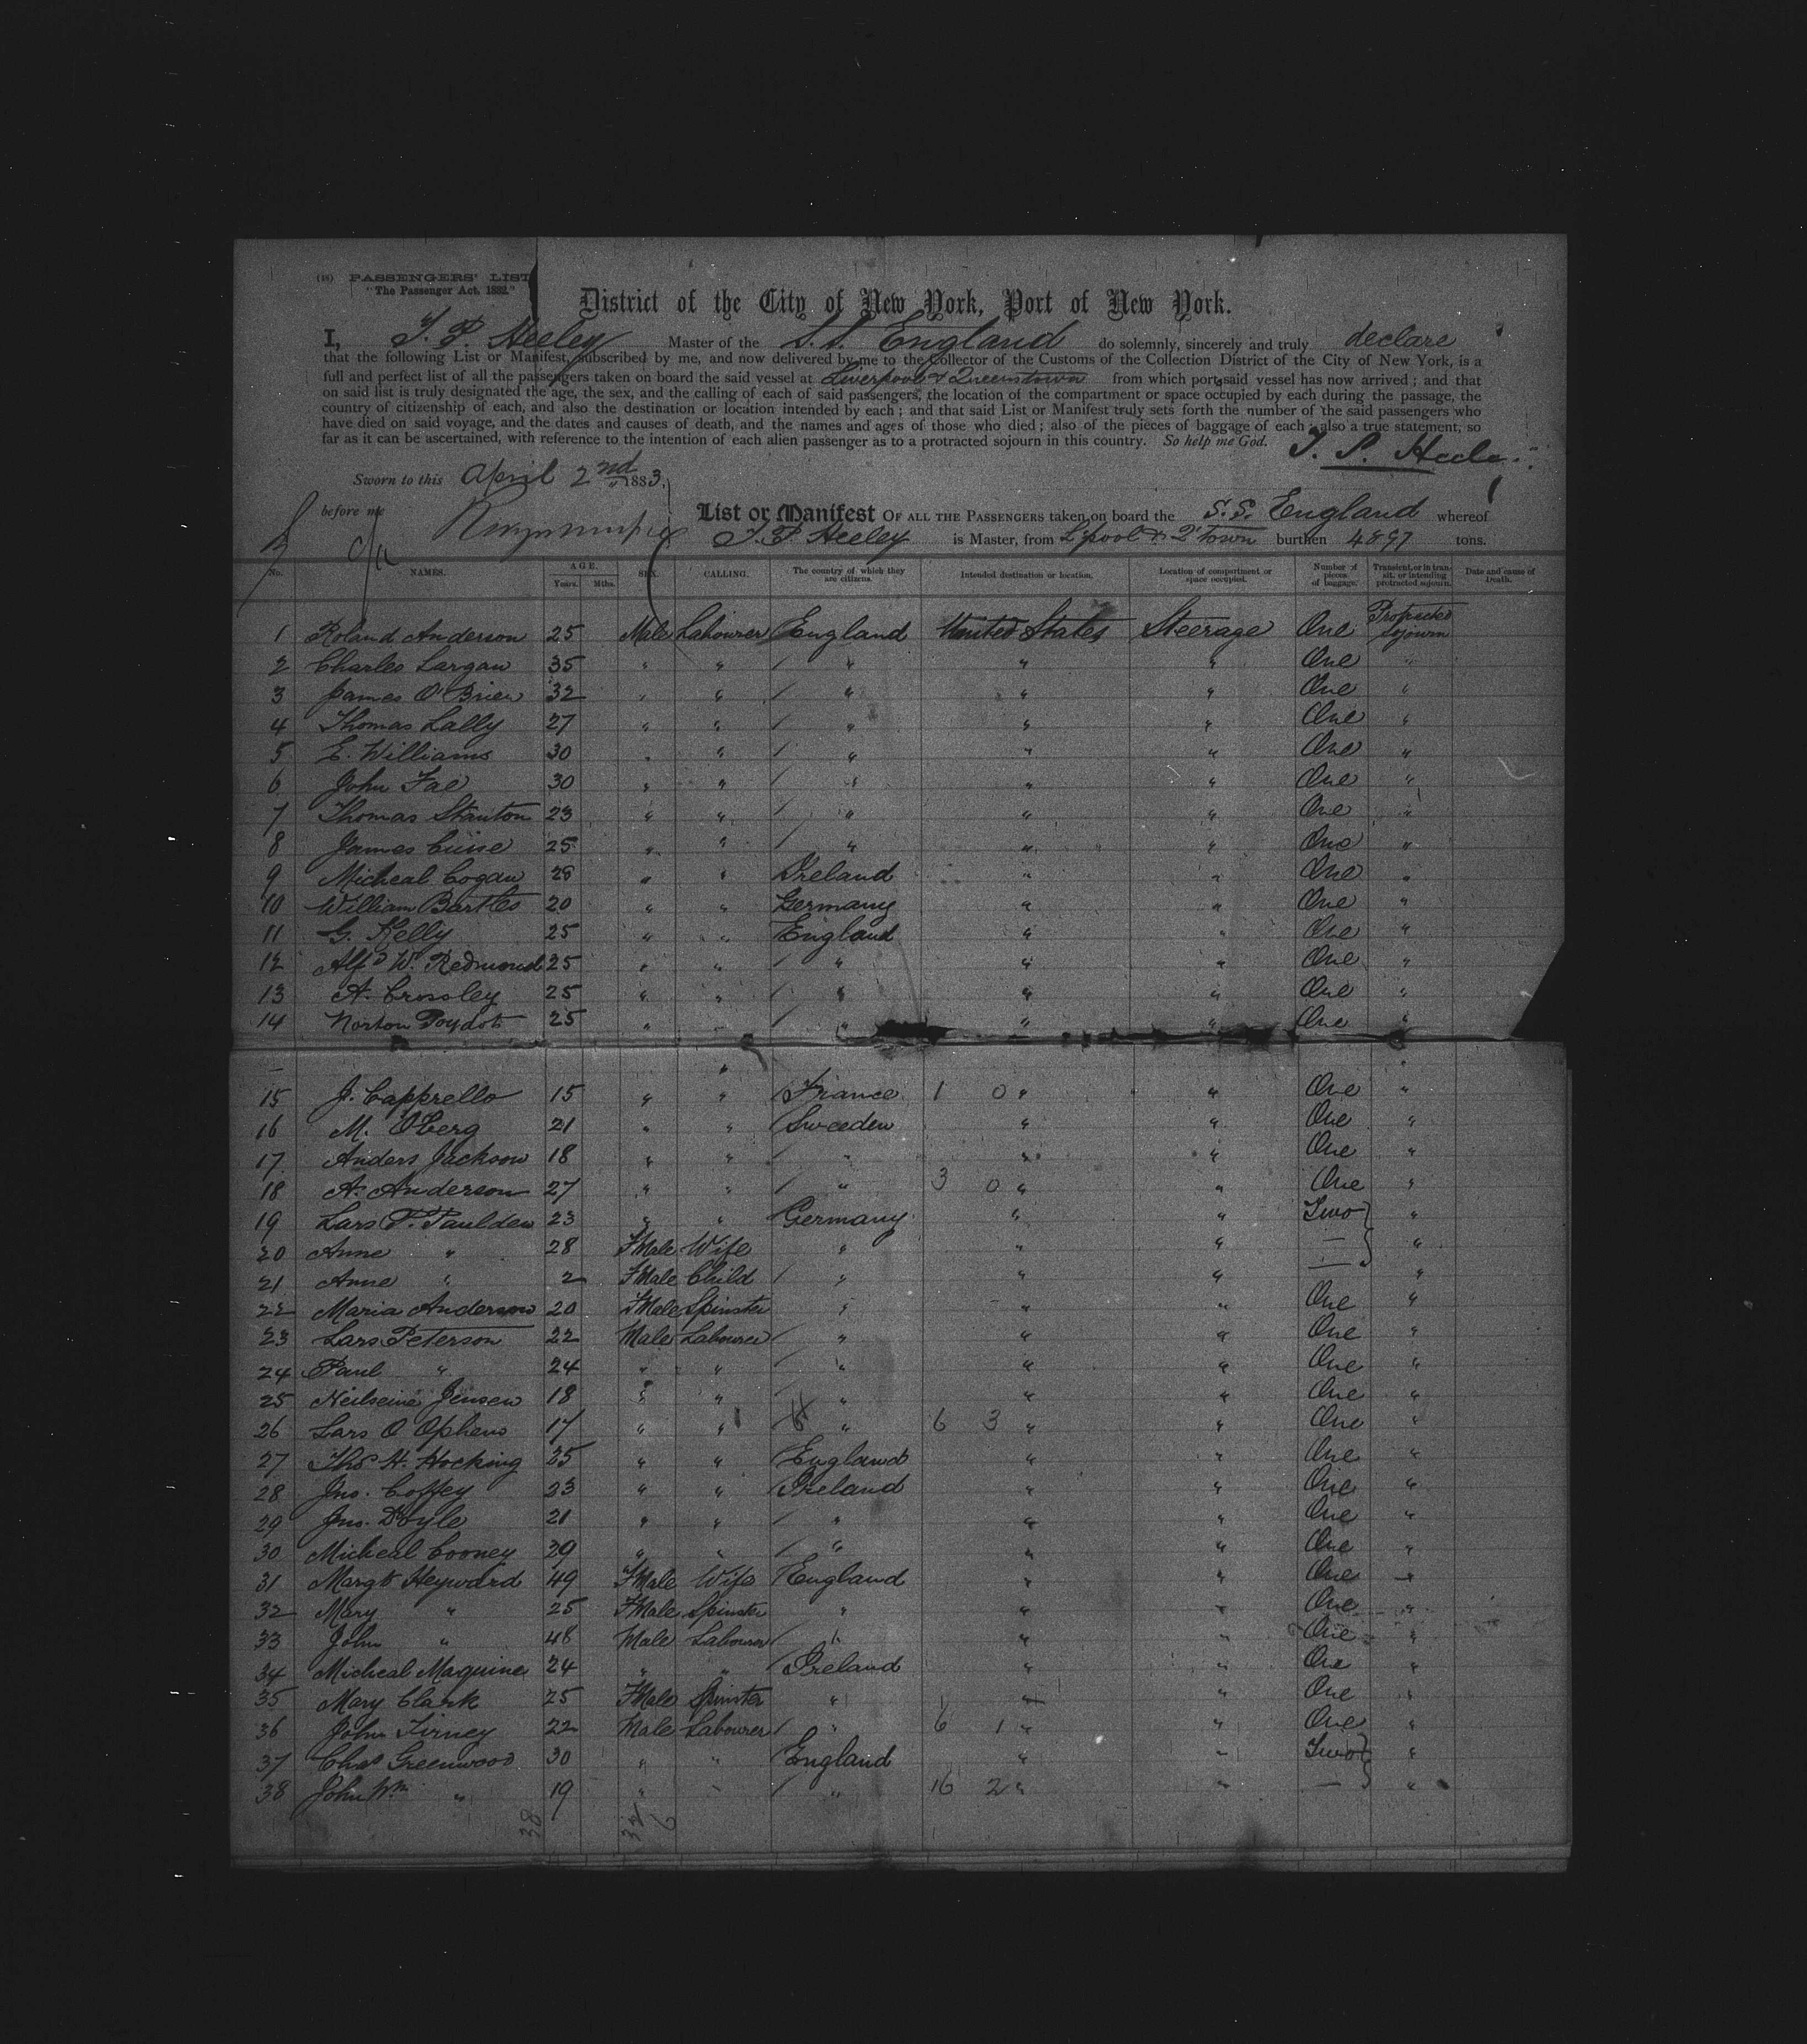 (18) PASSENGERS' LIST
"The Passenger Act, 1882."
District of the City of New York, Port of New York.
I, T. P. Heeley Master of the S.S. England do solemnly, sincerely and truly declare
that the following List or Manifest, subscribed by me, and now delivered by me to the Collector of the Customs of the Collection District of the City of New York, is a
full and perfect list of all the passengers taken on board the said vessel at Liverpool & Queenstown from which port said vessel has now arrived; and that
on said list is truly designated the age, the sex, and the calling of each of said passengers, the location of the compartment or space occupied by each during the passage, the
country of citizenship of each, and also the destination or location intended by each; and that said List or Manifest truly sets forth the number of the said passengers who
have died on said voyage, and the dates and causes of death, and the names and ages of those who died; also of the pieces of baggage of each; also a true statement, so
far as it can be ascertained, with reference to the intention of each alien passenger as to a protracted sojourn in this country. So help me God. T. P. Heeley
Sworn to this April 2nd 1883,
before me
List or Manifest OF ALL THE PASSENGERS taken on board the S.S. England whereof
T. P. Heeley is Master, from L'pool & Q'town burthen 4897 tons.
No. NAMES. AGE. Years. Mths. SEX. CALLING. The country of which they are citizens. Intended destination or location. Location of compartment or space occupied. Number of pieces of baggage. Transient, or in transit, or intending protracted sojourn. Date and cause of Death.
1 Roland Anderson 25 Male Labourer England United States Steerage One Protracted Sojourn
2 Charles Largan 35 " " " " " One "
3 James O'Brien 32 " " " " " One "
4 Thomas Lally 27 " " " " " One "
5 E. Williams 30 " " " " " One "
6 John Fae 30 " " " " " One "
7 Thomas Stanton 23 " " " " " One "
8 James 25 " " " " " One "
9 Micheal Cogan 28 " " Ireland " " One "
10 William Bartles 20 " " Germany " " One "
11 G. Kelly 25 " " England " " One "
12 Alfd W. Redmond 25 " " " " " One "
13 A. Crossley 25 " " " " " One "
14 Norton 25 " " " " " One "
15 J. Capprello 15 " " France 1 0 " " One "
16 M. Oberg 21 " " Sweeden " " One "
17 Anders Jackson 18 " " " " " One "
18 A. Anderson 27 " " " 3 0 " " One "
19 Lars P. Paulden 23 " " Germany " " Two "
20 Anne " 28 FMale Wife " " " — "
21 Anne " 2 FMale Child " " " — "
22 Maria Anderson 20 FMale Spinster " " " One "
23 Lars Peterson 22 Male Labourer " " " One "
24 Paul " 24 " " " " " One "
25 Jensen 18 " " " " " One "
26 Lars O 17 " " " 6 3 " " One "
27 Thos H. Hocking 25 " " England " " One "
28 Jno. Coffey 23 " " Ireland " " One "
29 Jno. Doyle 21 " " " " " One "
30 Micheal Cooney 29 " " " " " One "
31 Margt Heyward 49 FMale Wife England " " One "
32 Mary " 25 FMale Spinster " " " One "
33 John " 48 Male Labourer " " " One "
34 Micheal Maguine 24 " " Ireland " " One "
35 Mary Clark 25 FMale Spinster " " " One "
36 John Tirney 22 Male Labourer " 6 1 " " One "
37 Chas Greenwood 30 " " England " " Two "
38 John Wm " 19 " " " 16 2 " " — "
38 32 6